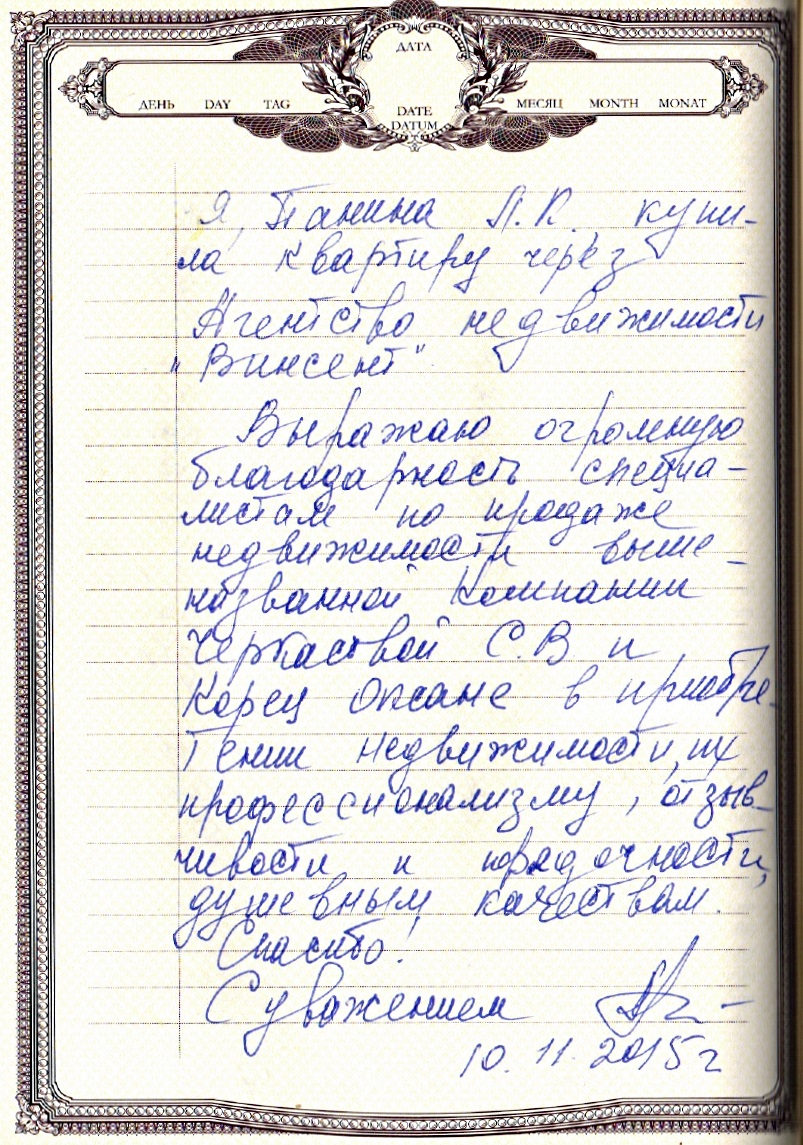 ДАТА
ДЕНЬ DAY TAG
DATE
DATUM
МЕСЯЦ MONTH MONAT
Я, Панина Л.К. купи-
ла квартиру через
Агентство недвижимости
"Винсент"
Выражаю огромную
благодарность специа-
листам по продаже
недвижимости выше-
названной компании
Черкасовой С.В и
Корец Оксане в приобре-
тении недвижимости, их
профессионализму, отзыв-
чивости и порядочности,
душевным качествам.
Спасибо!
С уважением
10.11.2015г